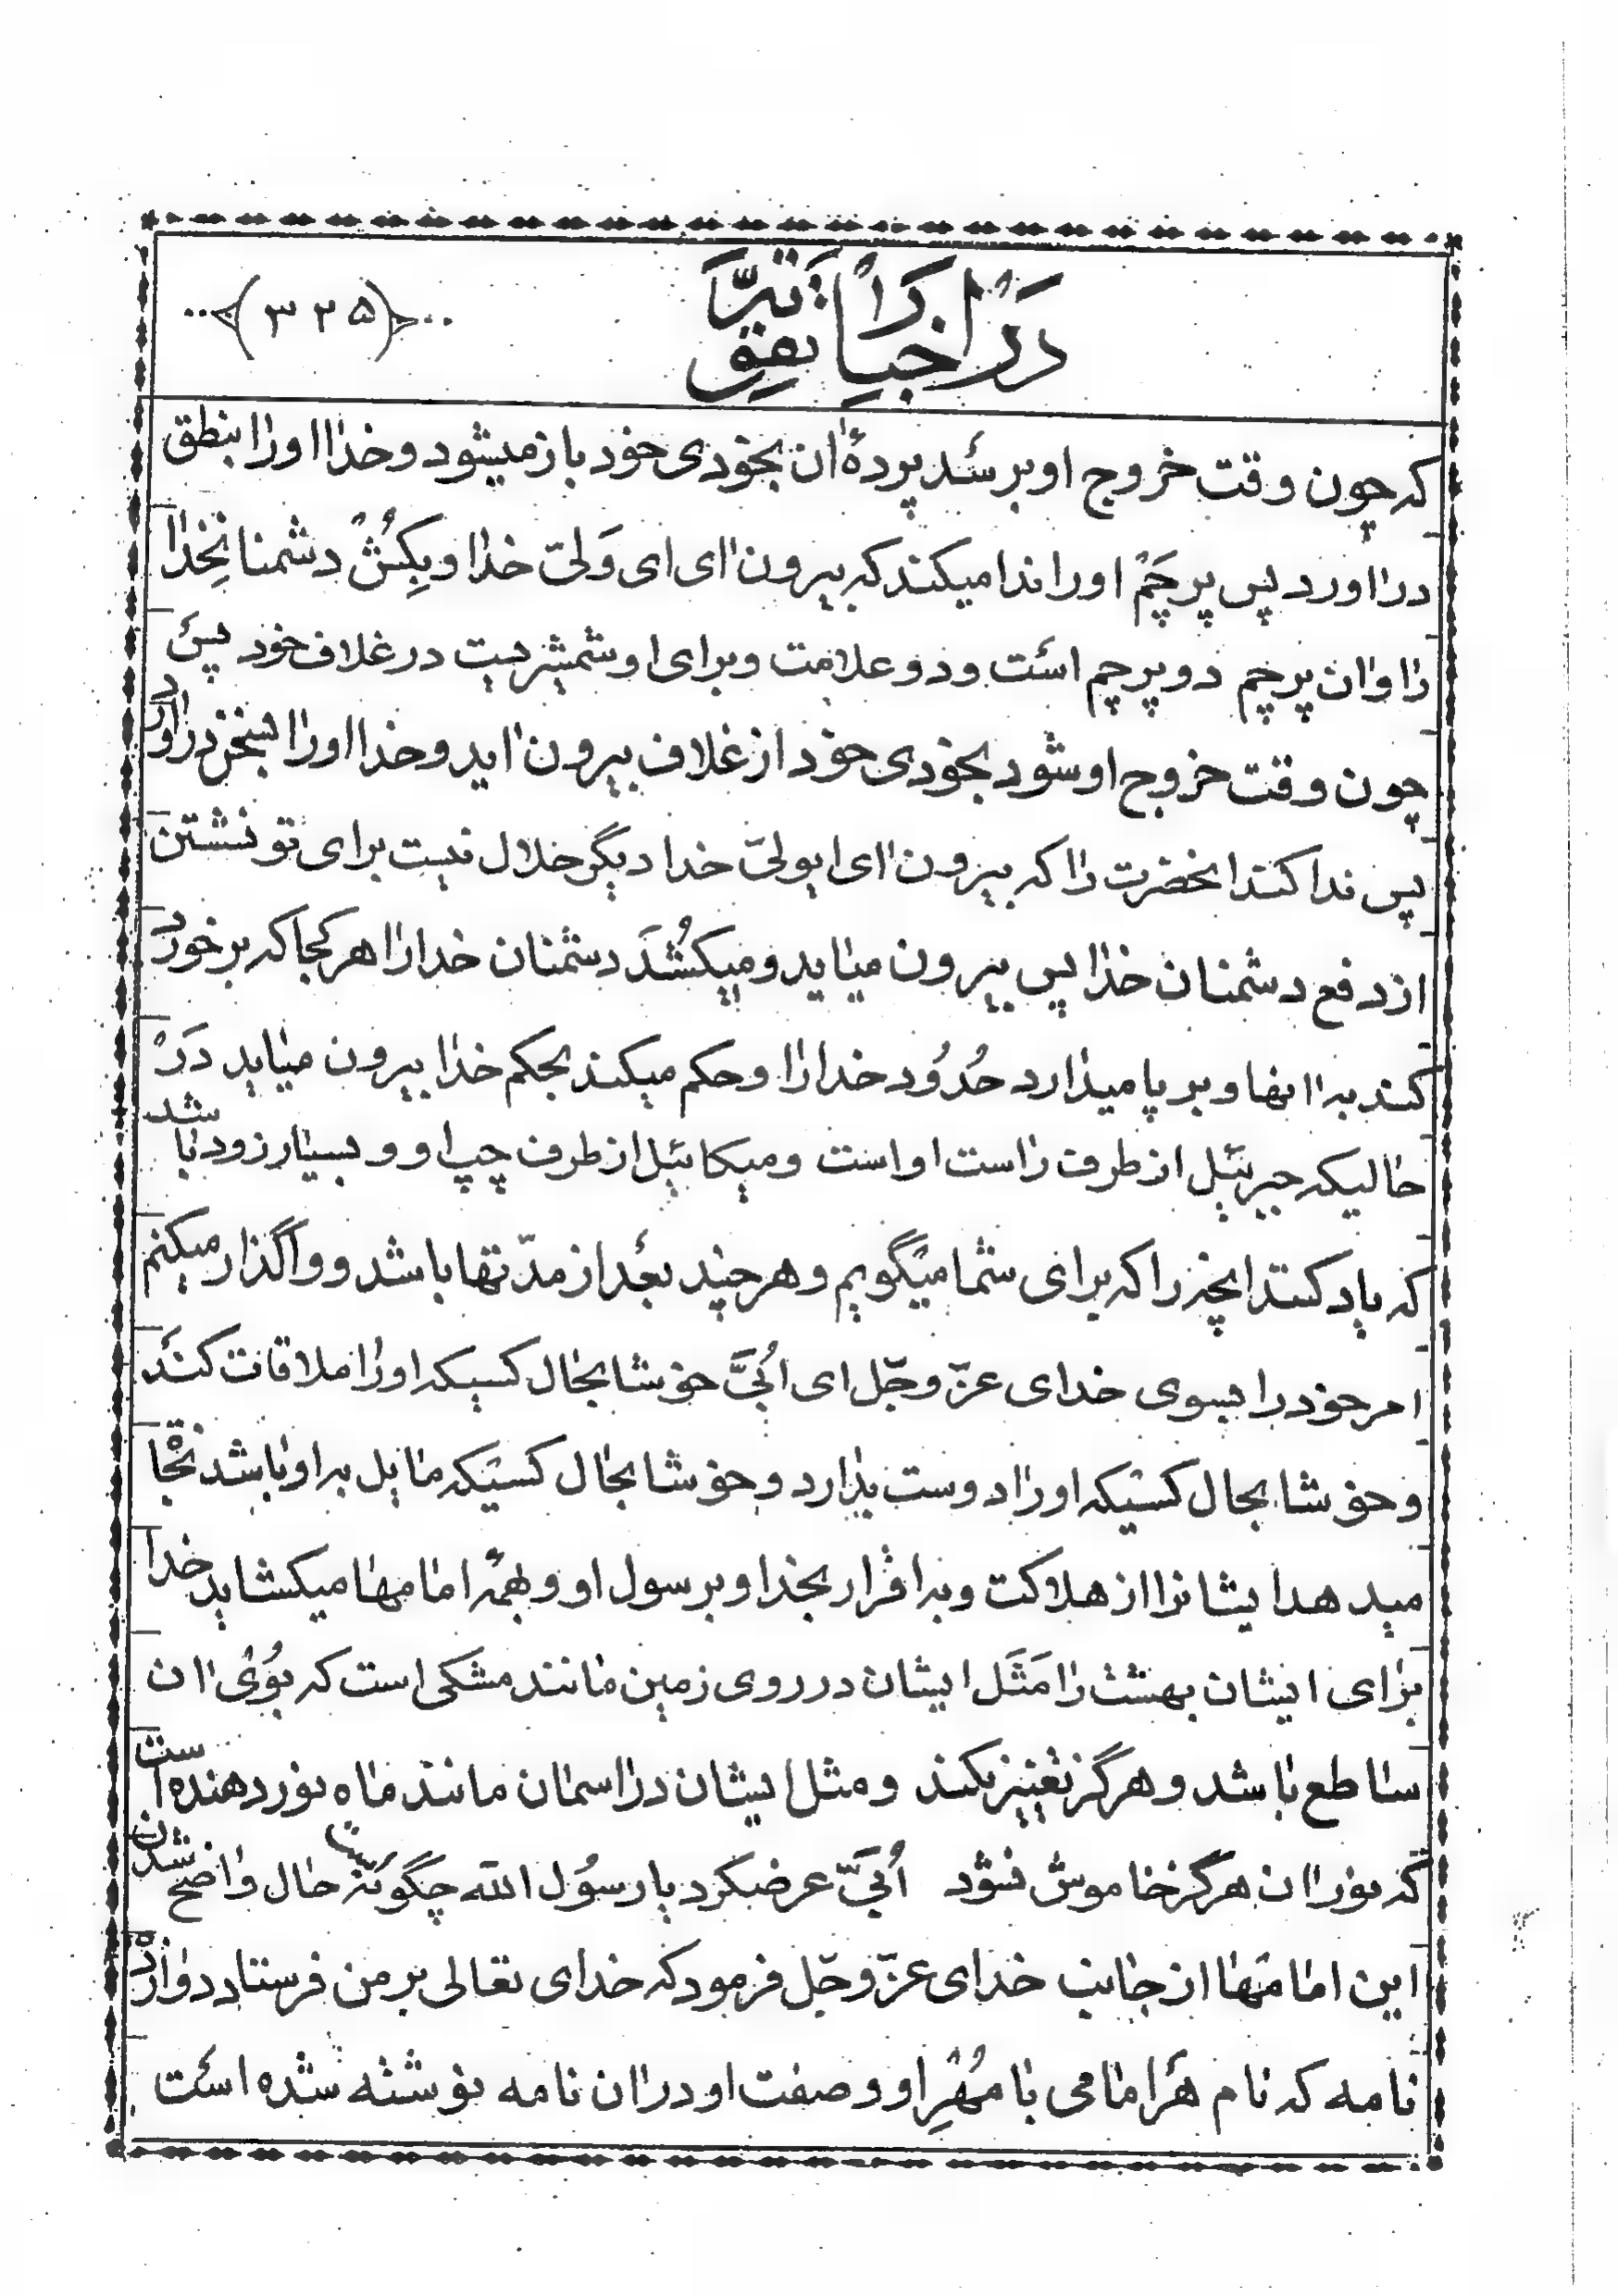 در اخبار نبویه
(۳۲۵)
که چون وقت خروج او برسد پردهٔ ان بخودی خود باز میشود و خدا او را بنطق
دراورد پس پرچم او را ندا میکند که بیرون ای ای ولیّ خدا و بکش دشمنان خدا
را و ان پرچم دو پرچم است و دو علامت و برای او شمشیریست در غلاف خود پس
چون وقت خروج او شود بخودی خود از غلاف بیرون اید و خدا او را بسخن دراورد
پس ندا کند انحضرت را که بیرون ای ایولیّ خدا دیگر حلال نیست برای تو نشستن
از دفع دشمنان خدا پس بیرون میاید و میکشد دشمنان خدا را هر کجا که برخورد
کند به انها و بر پا میدارد حدود خدا را و حکم میکند بحکم خدا بیرون میاید در
حالیکه جبرئیل از طرف راست او است و میکائیل از طرف چپ او و بسیار زود باشد
که یاد کنند انچه را که برای شما میگویم و هر چند بعد از مدّتها باشد و واگذار میکنم
امر خود را بسوی خدای عزّ و جلّ ای ابُیّ خوشا بحال کسیکه او را ملاقات کند
و خوشا بحال کسیکه او را دوست بدارد و خوشا بحال کسیکه مایل به او باشد نجا
میدهد ایشانرا از هلاکت و به اقرار بخدا و برسول او و بهمهٔ امامها میکشاید خدا
برای ایشان بهشت را مثل ایشان در روی زمین مانند مشکی است که بوی ان
ساطع باشد و هرگز تغییر نکند و مثل ایشان در اسمان مانند ماه نور دهنده است
که نور ان هرگز خاموش نشود اُبَیّ عرضکرد یا رسول الله چگونه است حال واضح شدن
این امامها از جانب خدای عزّ و جلّ فرمود که خدای تعالی بر من فرستاد دوازده
نامه که نام هر امامی با مُهرِ او و صفت او در ان نامه نوشته شده است